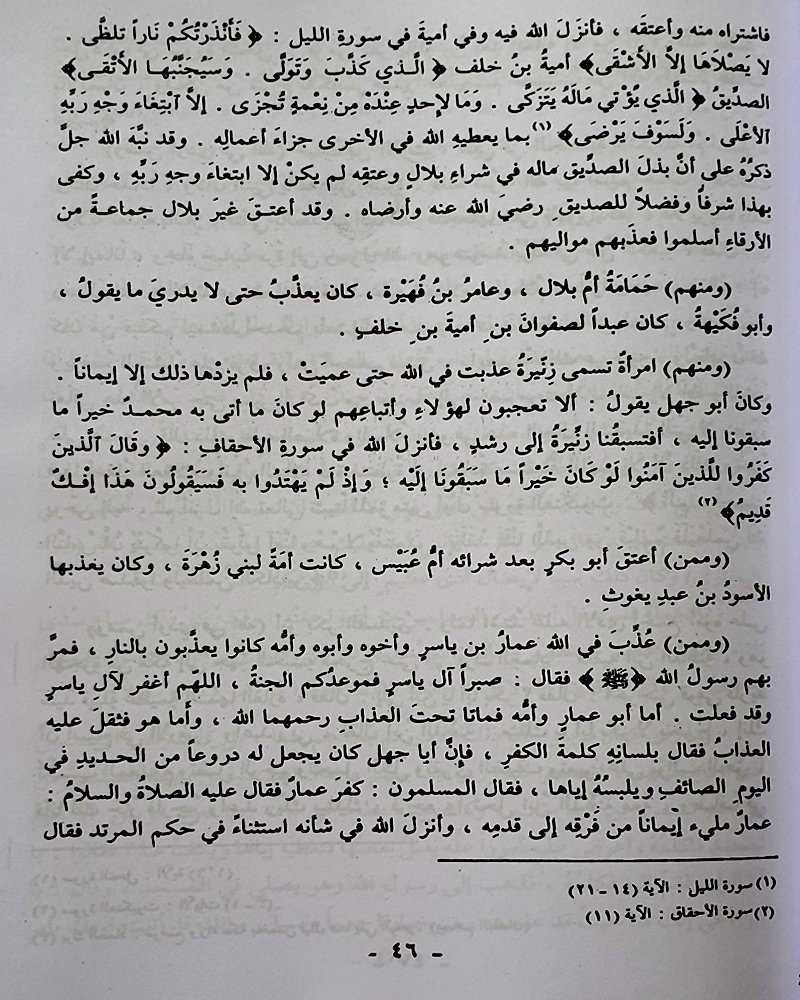 فاشتراه منه وأعتقَه ، فأنزلَ الله فيه وفي أميةَ في سورةِ الليل : ﴿ فَأَنْذَرْتُكُمْ نَاراً تلظَّى .
لا يَصْلاَهَا إلاَّ الأَشْقَى﴾ أميةُ بنُ خلف ﴿ الَّـذي كَذَّبَ وَتَوَلَّى . وَسَيُجَنَّبُهَـا الأَتْقَـى﴾
الصدِّيقُ ﴿ الَّذي يُؤتي مَالَهُ يَتَزَكَّى . وَمَا لإحدٍ عِنْدَهُ مِنْ نِعْمةٍ تُجْزَى . إلاَّ ٱبْتِغَاءَ وَجْهِ رَبِّهِ
ٱلأعْلَى . وَلَسَوْفَ يَرْضَى﴾(١) بما يعطيهِ الله في الأخرى جزاءَ أعمالِه . وقد نبَّهَ الله جلَّ
ذكرُهُ على أنَّ بذلَ الصدِّيق ماله في شراءِ بلالٍ وعتقِه لم يكنْ إلا ابتغاءَ وجهِ رَبِّهِ ، وكفى
بهذا شرفاً وفضلاً للصديقِ رضيَ الله عنه وأرضاه . وقد أعتـقَ غيرَ بلال جماعـةً من
الأرقاءِ أسلموا فعذّبهم مواليهم .
(ومنهم) حَمَامَةُ أمُّ بلال ، وعامرُ بنُ فُهَيْرة ، كان يعذَّبُ حتى لا يدريَ ما يقولُ ،
وأبو فُكَيْهةُ ، كان عبداً لصفوانَ بنِ أميةَ بنِ خلفٍ .
(ومنهم) امرأةٌ تسمى زِنِّيَرَةُ عذبت في الله حتى عميَتْ ، فلم يزدْها ذلك إلا إيماناً .
وكانَ أبو جهل يقولُ : ألا تعجبون لهؤلاءِ وأتباعِهم لو كانَ ما أتى به محمـدٌ خيراً ما
سبقونا إليه ، أفتسبقُنا زنِّيرَةُ إلى رشدٍ ، فأنزلَ الله في سورةِ الأحقافِ : ﴿ وقَالَ ٱلَّذينَ
كَفَرُوا للَّذينَ آمَنُوا لَوْ كَانَ خَيْراً مَا سَبَقُونَا إلَيْه ؛ وَإذْ لَمْ يَهْتَدُوا به فَسَيَقُولُونَ هَذَا إفْـكٌ
قَدِيمٌ﴾(٢)
(وممن) أعتقَ أبو بكرٍ بعد شرائه أمُّ عُبَيْس ، كانت أمَةً لبني زُهْرَةَ ، وكان يعذبها
الأسودُ بنُ عبدِ يغوثِ .
(وممن) عُذِّبَ في الله عمارُ بن ياسرٍ وأخوه وأبوه وأمُّه كانوا يعذَّبون بالنارِ ، فمرَّ
بهم رسولُ الله ﴿ﷺ﴾ فقال : صبراً آل ياسرٍ فموعدُكم الجنةُ ، اللهّم أغفر لآلِ ياسرٍ
وقد فعلت . أما أبو عمارٍ وأمُّه فماتا تحتَ العذابِ رحمهما الله ، وأما هو فثقلَ عليه
العذابُ فقال بلسانِه كلمةَ الكفرِ ، فإنَّ أبا جهل كان يجعل له دروعاً من الحـديدِ في
اليومِ الصائفِ ويلبسُهُ إياها ، فقال المسلمون : كفرَ عمارٌ فقال عليه الصلاةُ والسلامُ :
عمارٌ مليء إيماناً من فَرْقِه إلى قدمِه ، وأنزلَ الله في شأنه استثناءً في حكم المرتد فقال
(١) سورة الليل : الآية (١٤ - ٢١)
(٢) سورة الأحقاق : الآية (١١)
- ٤٦ -